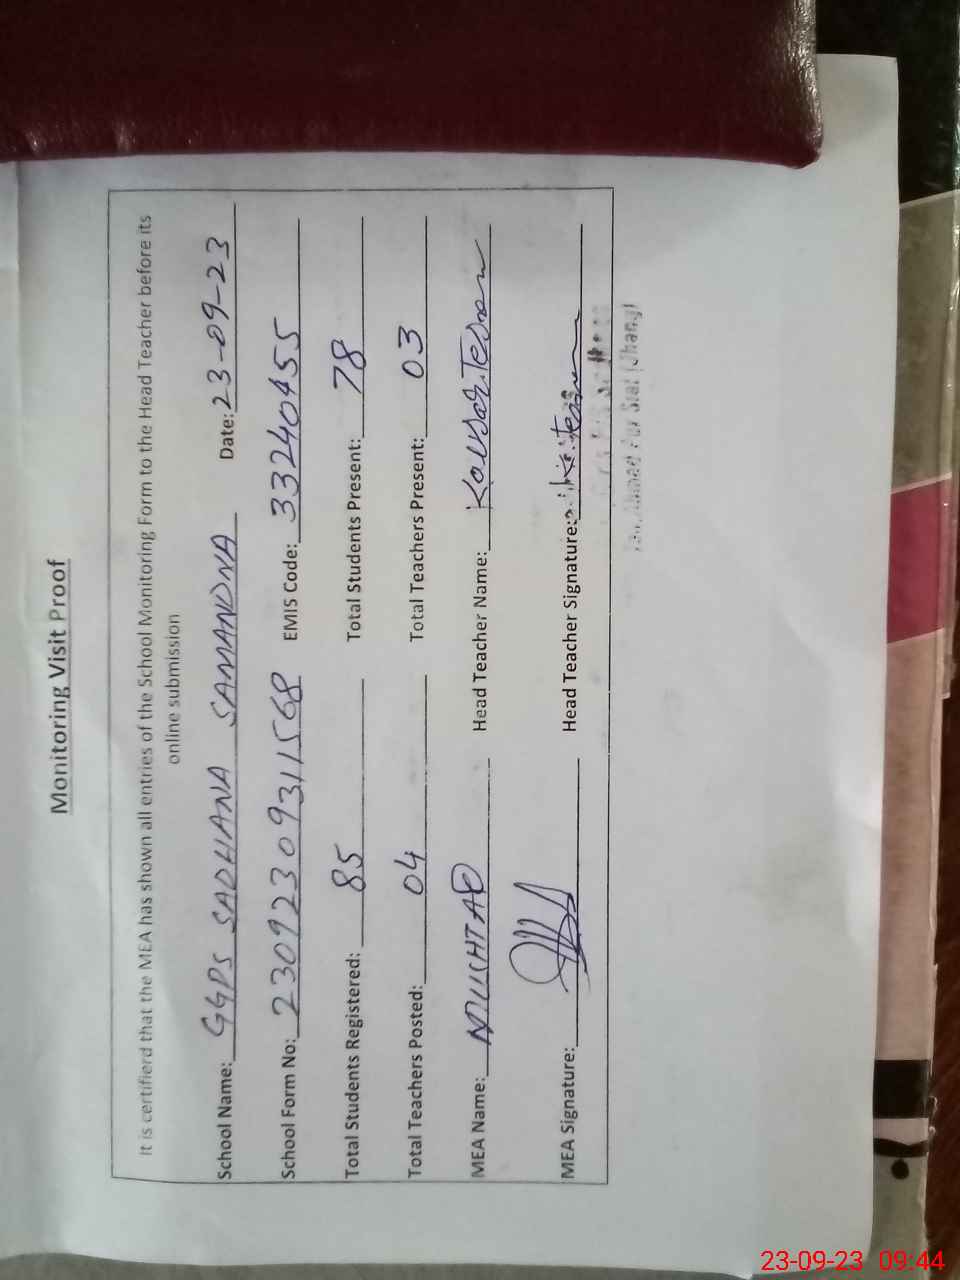 Monitoring Visit Proof
It is certifierd that the MEA has shown all entries of the School Monitoring Form to the Head Teacher before its
online submission
School Name: GGPS SADHANA SAMANDNA Date: 23-09-23
School Form No: 23092309311568 EMIS Code: 33240455
Total Students Registered: 85 Total Students Present: 78
Total Teachers Posted: 04 Total Teachers Present: 03
MEA Name: MUSHTAQ Head Teacher Name: Kousar Tesnem
MEA Signature: Head Teacher Signature:
Ahmad Pur Sial (Jhang)
23-09-23 09:44